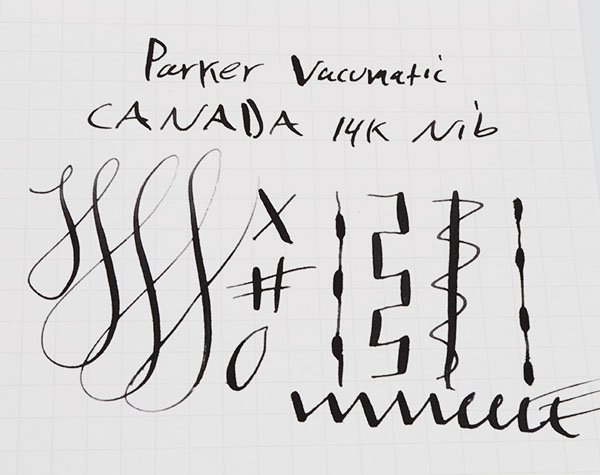 Parker Vacumatic
CANADA 14K Nib
X
#
O